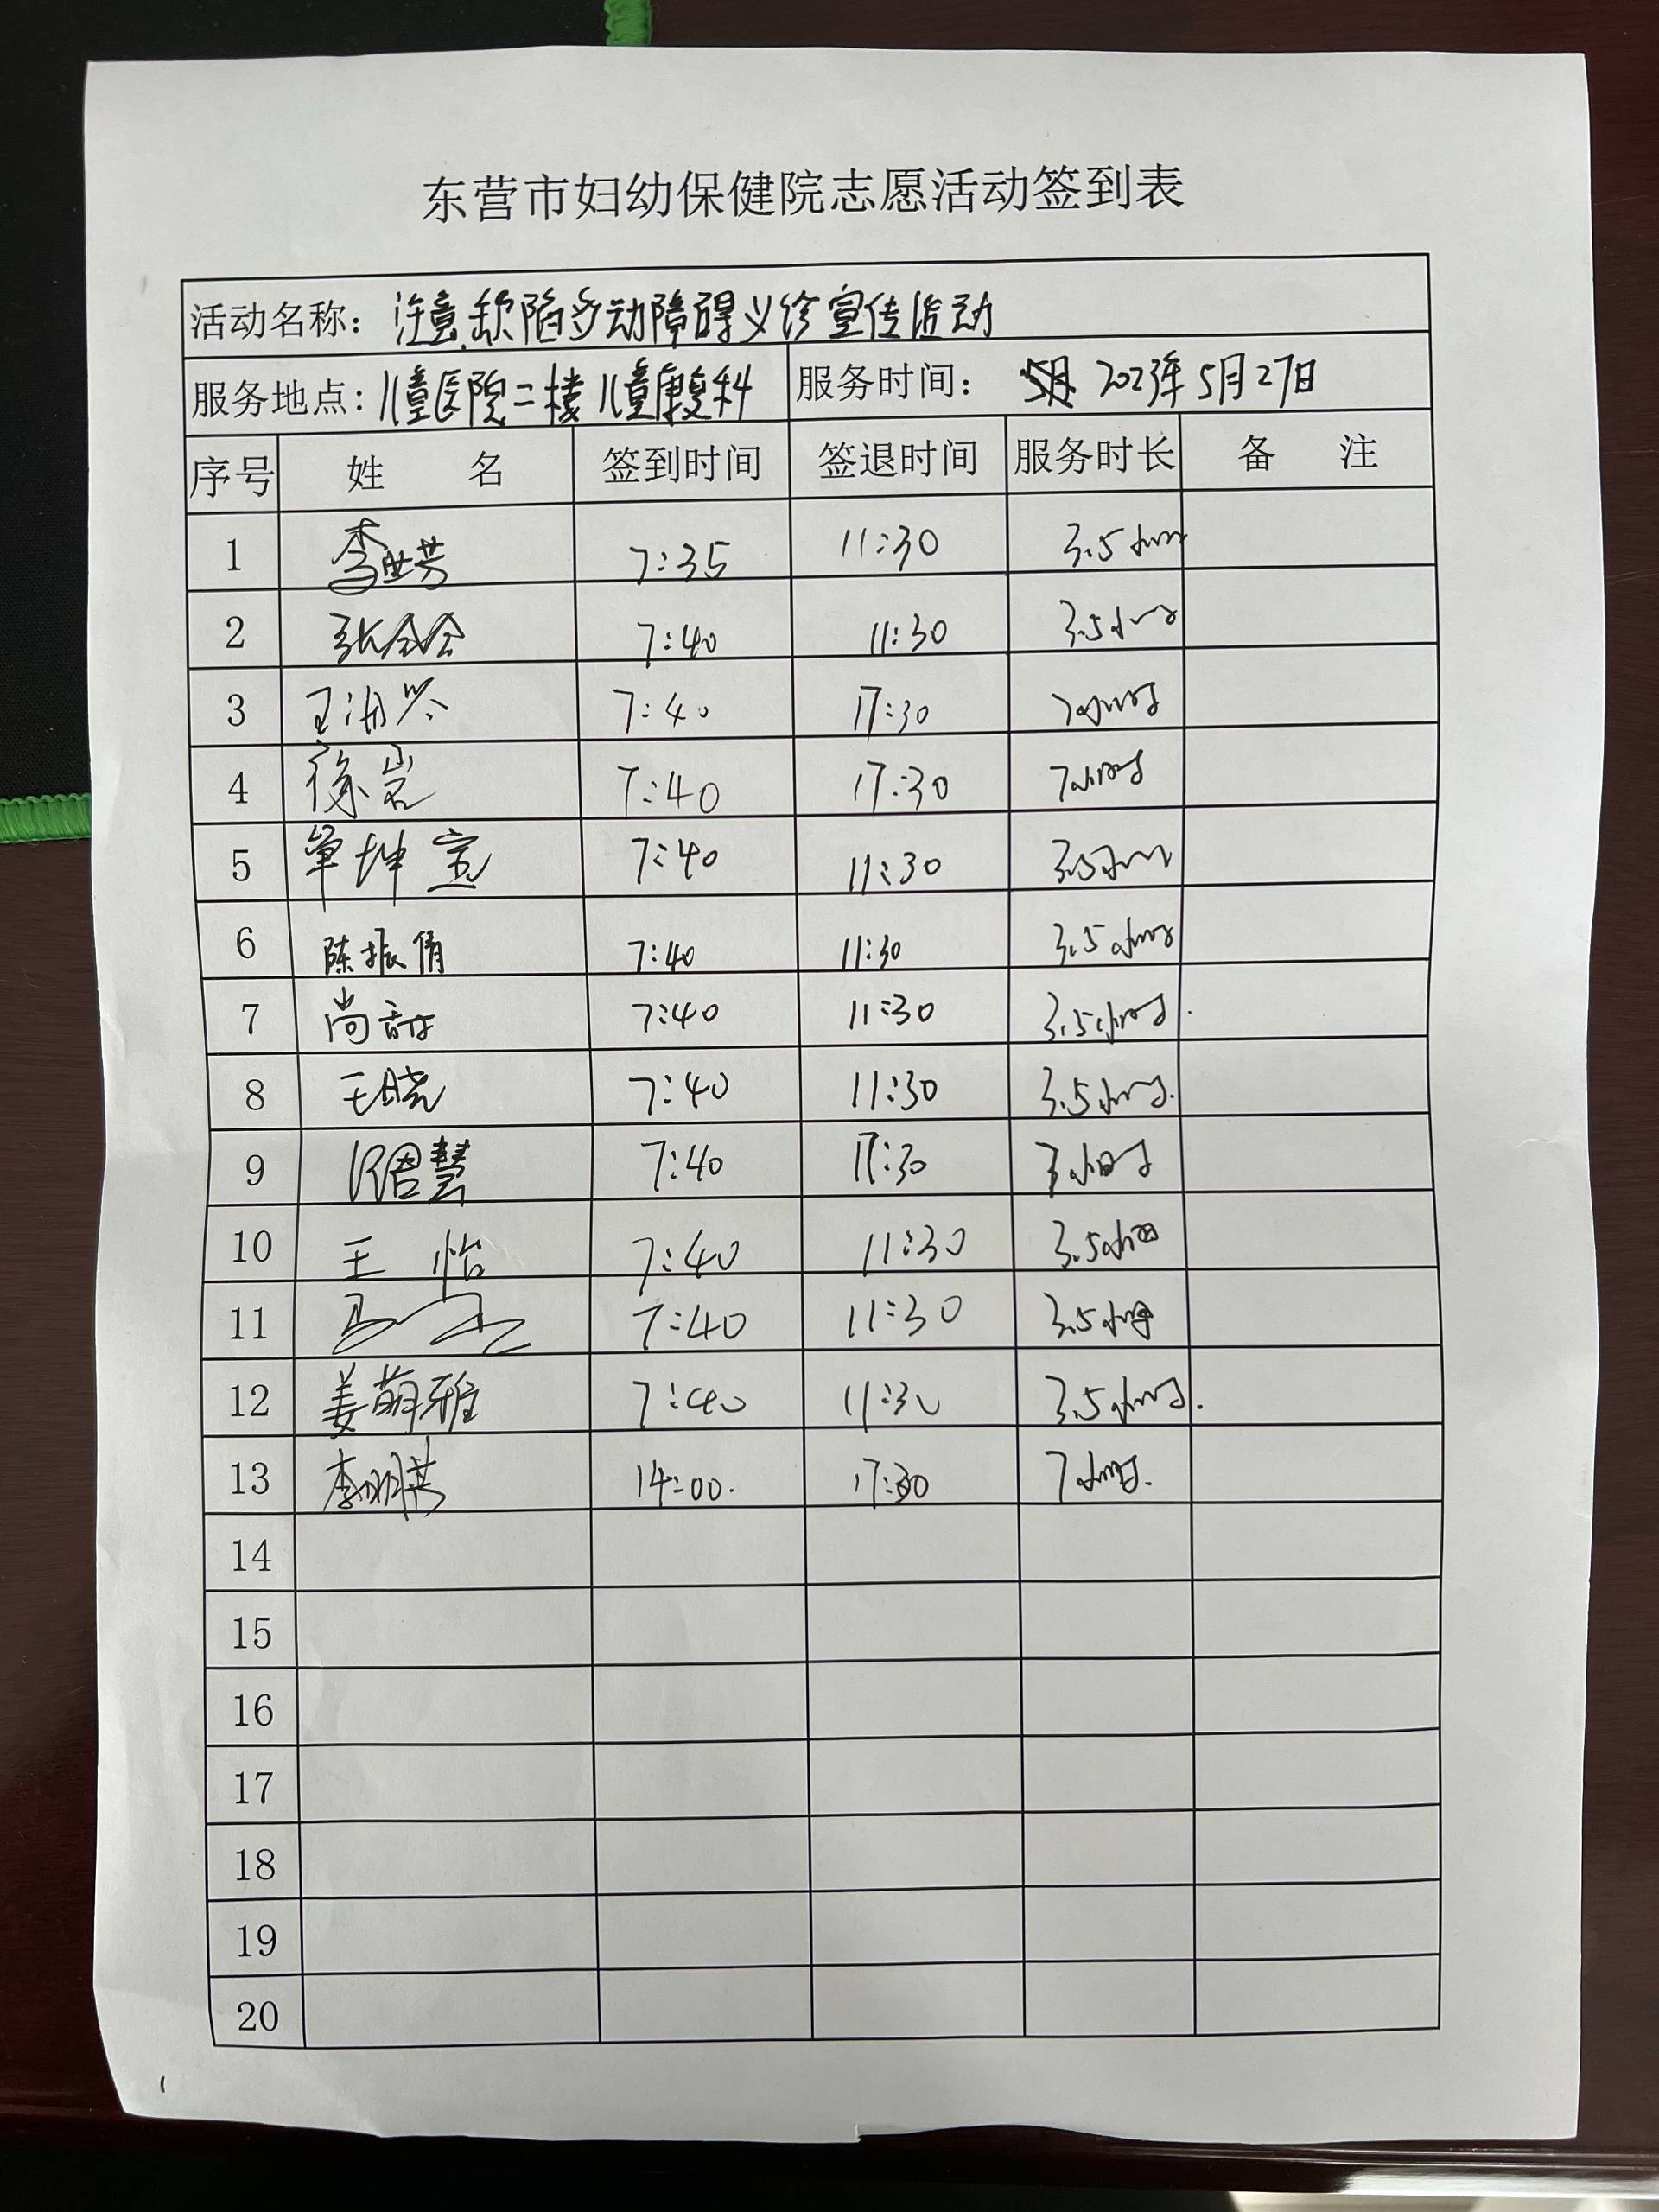 东营市妇幼保健院志愿活动签到表
活动名称：注意缺陷多动障碍义诊宣传活动
服务地点：儿童医院二楼儿童康复科 服务时间： 2023年5月27日
序号 姓 名 签到时间 签退时间 服务时长 备 注
1 李世芳 7:35 11:30 3.5小时
2 张会会 7:40 11:30 3.5小时
3 7:40 17:30 7小时
4 徐岩 7:40 17:30 7小时
5 单坤宝 7:40 11:30 3.5小时
6 陈振倩 7:40 11:30 3.5小时
7 尚甜 7:40 11:30 3.5小时.
8 王晓 7:40 11:30 3.5小时.
9 7:40 17:30 7小时
10 王 怡 7:40 11:30 3.5小时
11 7:40 11:30 3.5小时
12 姜萌雅 7:40 11:30 3.5小时.
13 李明洪 14:00. 17:30 7小时.
14
15
16
17
18
19
20